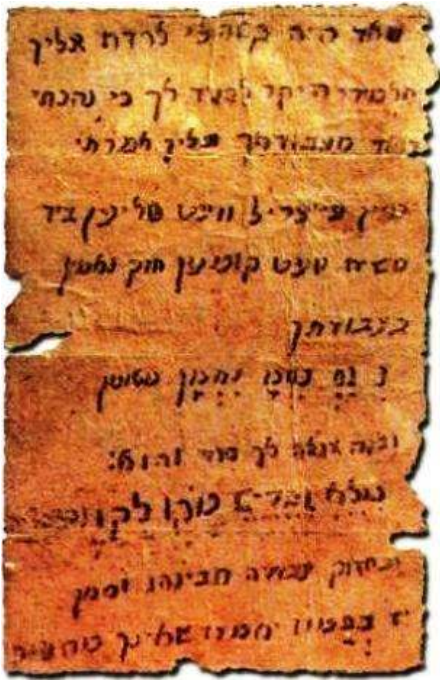 מאד היה קשה לי לרדת אליך
תלמידי היקר להגיד לך כי נהנתי
מאד מעבודתך עליך אמרתי
מיין פייערל וועט טליען ביז
משיח וועט קומען חזק ואמץ
בעבודתך
נַ נַחְ נַחְמָ נַחְמָן מאומן
ובזה אגלה לך סוד והוא:
מלא וגדיש מקו לקו
ובחזוק עבודה תבינהו וסימן
בתמוז יאמרו שאינך מתענה